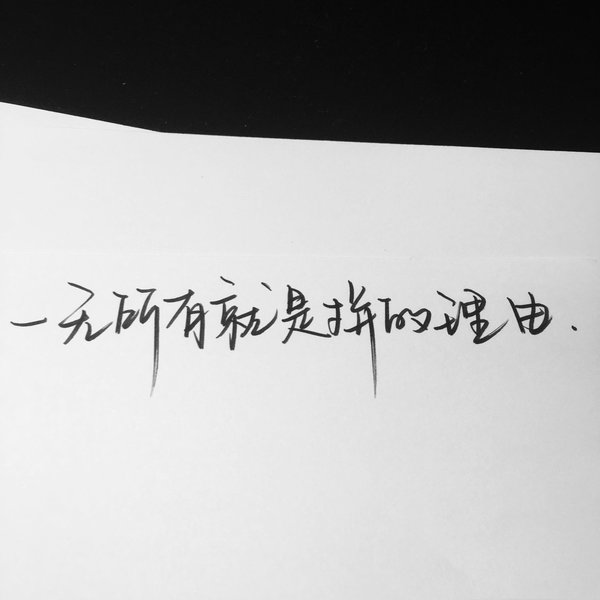 一无所有就是拼的理由.